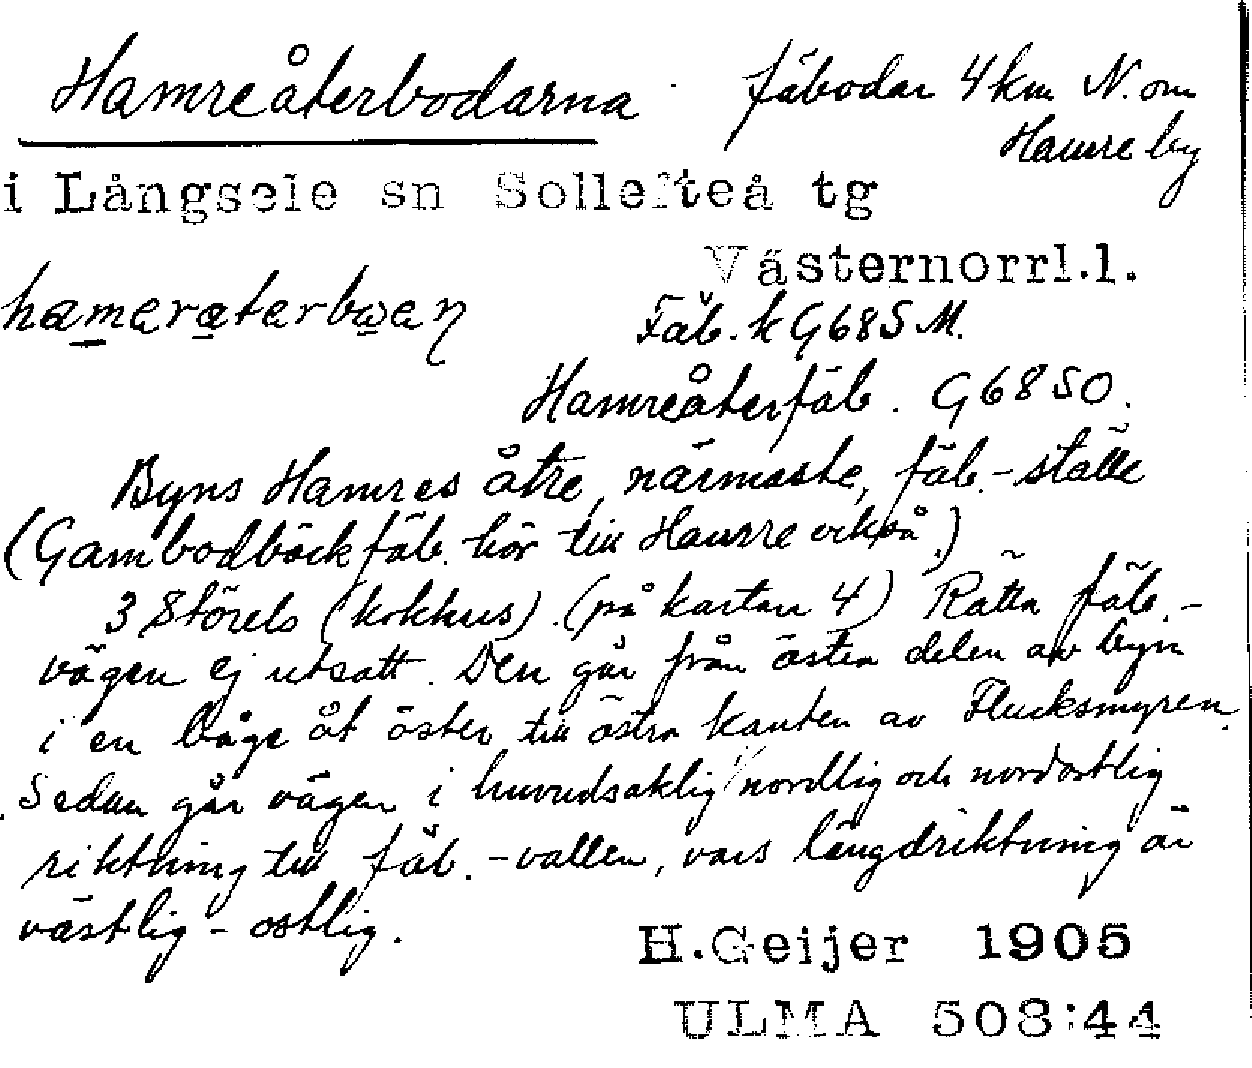 Hamreåterbodarna fäbodar 4 km N. om
Hamre by
i Långsele sn Sollefteå tg
Västernorrl.l.
hameraterbwen
Fäb. k G68SM.
Hamreåterfäb. G68SO.
Byns Hamres åtre, närmaste, fäb.-ställe
(Gambodbäckfäb. hör till Hamre också.)
3 Störels (kokhus). (på kartan 4) Rätta fäb.-
vägen ej utsatt. Den går från östra delen av byn
i en båge åt öster till östra kanten av Flucksmyren.
Sedan går vägen i huvudsaklig nordlig och nordostlig
riktning till fäb.-vallen, vars längdriktning är
västlig - ostlig.
H.Geijer 1905
ULMA 508:44